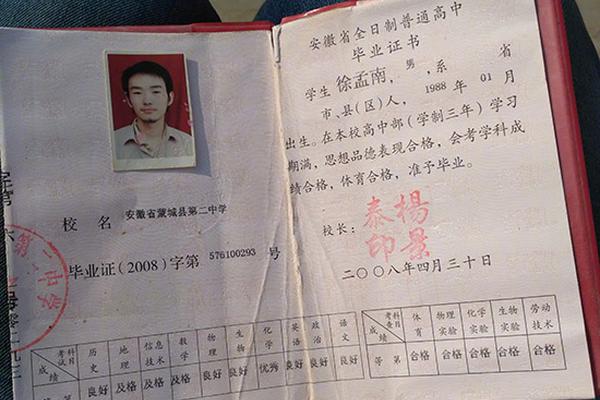 校名 安徽省蒙城县第二中学
毕业证(2008)字第 576100293 号
第二中学
考试科目 成绩 历史 地理 信息技术 数学 物理 生物 化学 英语 政治 语文
良好 及格 及格 及格 良好 良好 优秀 良好 良好 良好
安徽省全日制普通高中
毕业证书
学生 徐孟南，男，系 省
市、县(区)人，1988 年 01 月
出生。在本校高中部(学制三年)学习
期满，思想品德表现合格，会考学科成
绩合格，体育合格，准予毕业。
校长：楊景泰印
二〇〇八年四月三十日
考查科目 成绩 体育 物理实验 化学实验 生物实验 劳动技术
等第 合格 合格 合格 合格 合格